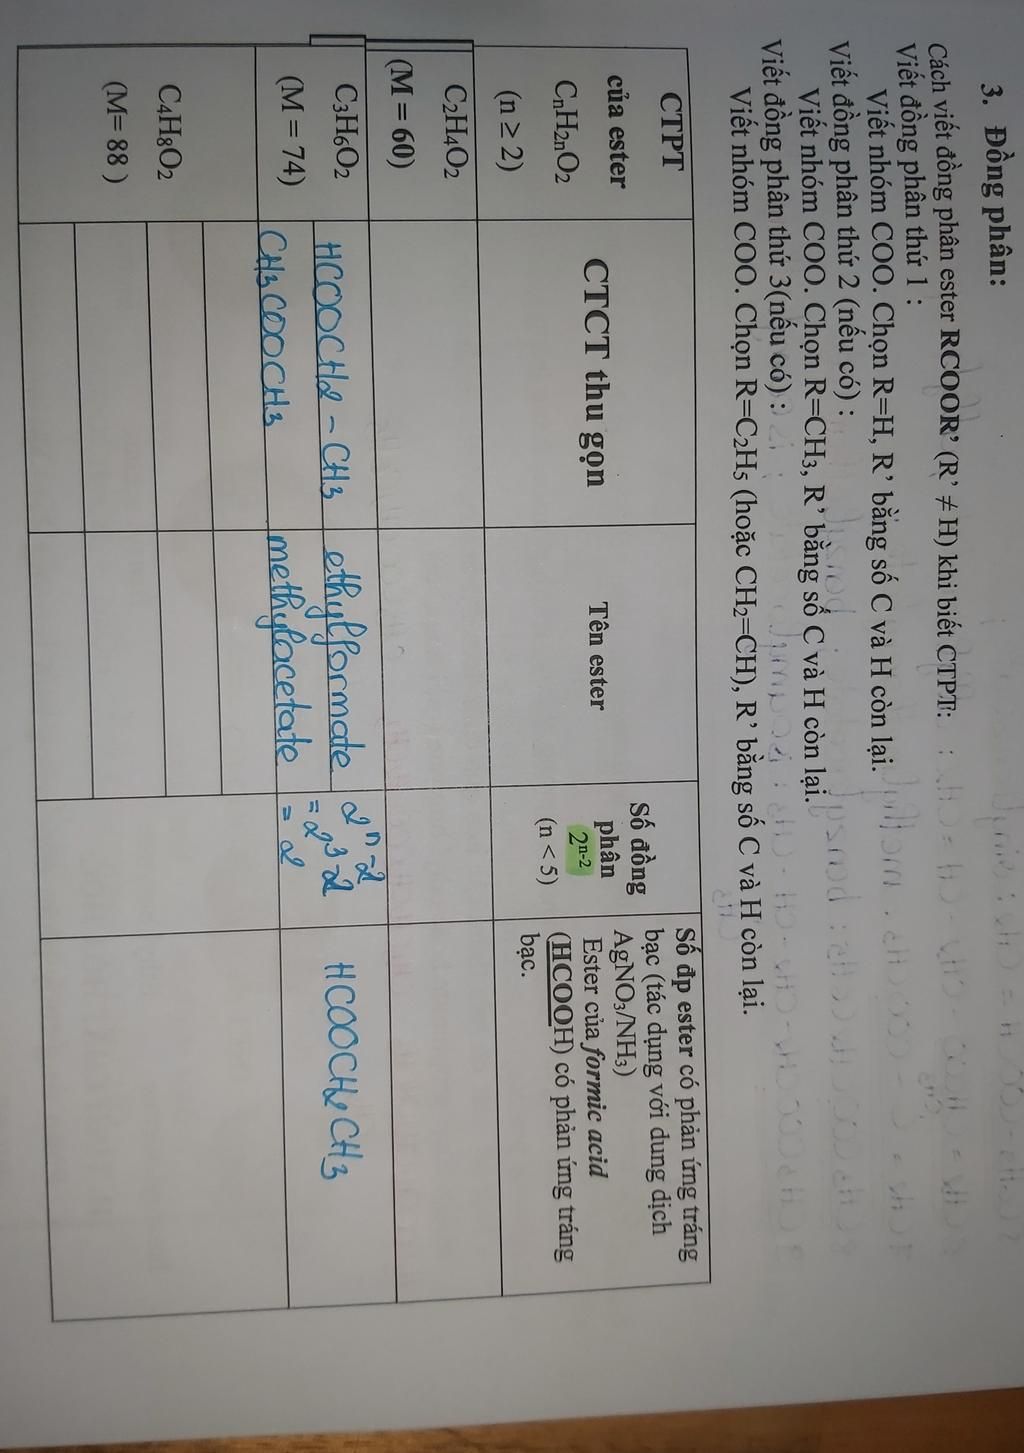 3. Đồng phân:
Cách viết đồng phân ester RCOOR’ (R’ ≠ H) khi biết CTPT:
Viết đồng phân thứ 1 :
Viết nhóm COO. Chọn R=H, R’ bằng số C và H còn lại.
Viết đồng phân thứ 2 (nếu có) :
Viết nhóm COO. Chọn R=CH₃, R’ bằng số C và H còn lại.
Viết đồng phân thứ 3(nếu có) :
Viết nhóm COO. Chọn R=C₂H₅ (hoặc CH₂=CH), R’ bằng số C và H còn lại.
CTPT
của ester
CₙH₂ₙO₂
(n ≥ 2)
CTCT thu gọn
Tên ester
Số đồng
phân
2ⁿ⁻²
(n < 5)
Số đp ester có phản ứng tráng
bạc (tác dụng với dung dịch
AgNO₃/NH₃)
Ester của formic acid
(HCOOH) có phản ứng tráng
bạc.
C₂H₄O₂
(M = 60)
C₃H₆O₂
(M = 74)
HCOOCH2 - CH3
ethylformate
CH3COOCH3
methylacetate
2ⁿ⁻²
= 2³⁻²
= 2
HCOOCH2CH3
C₄H₈O₂
(M= 88 )